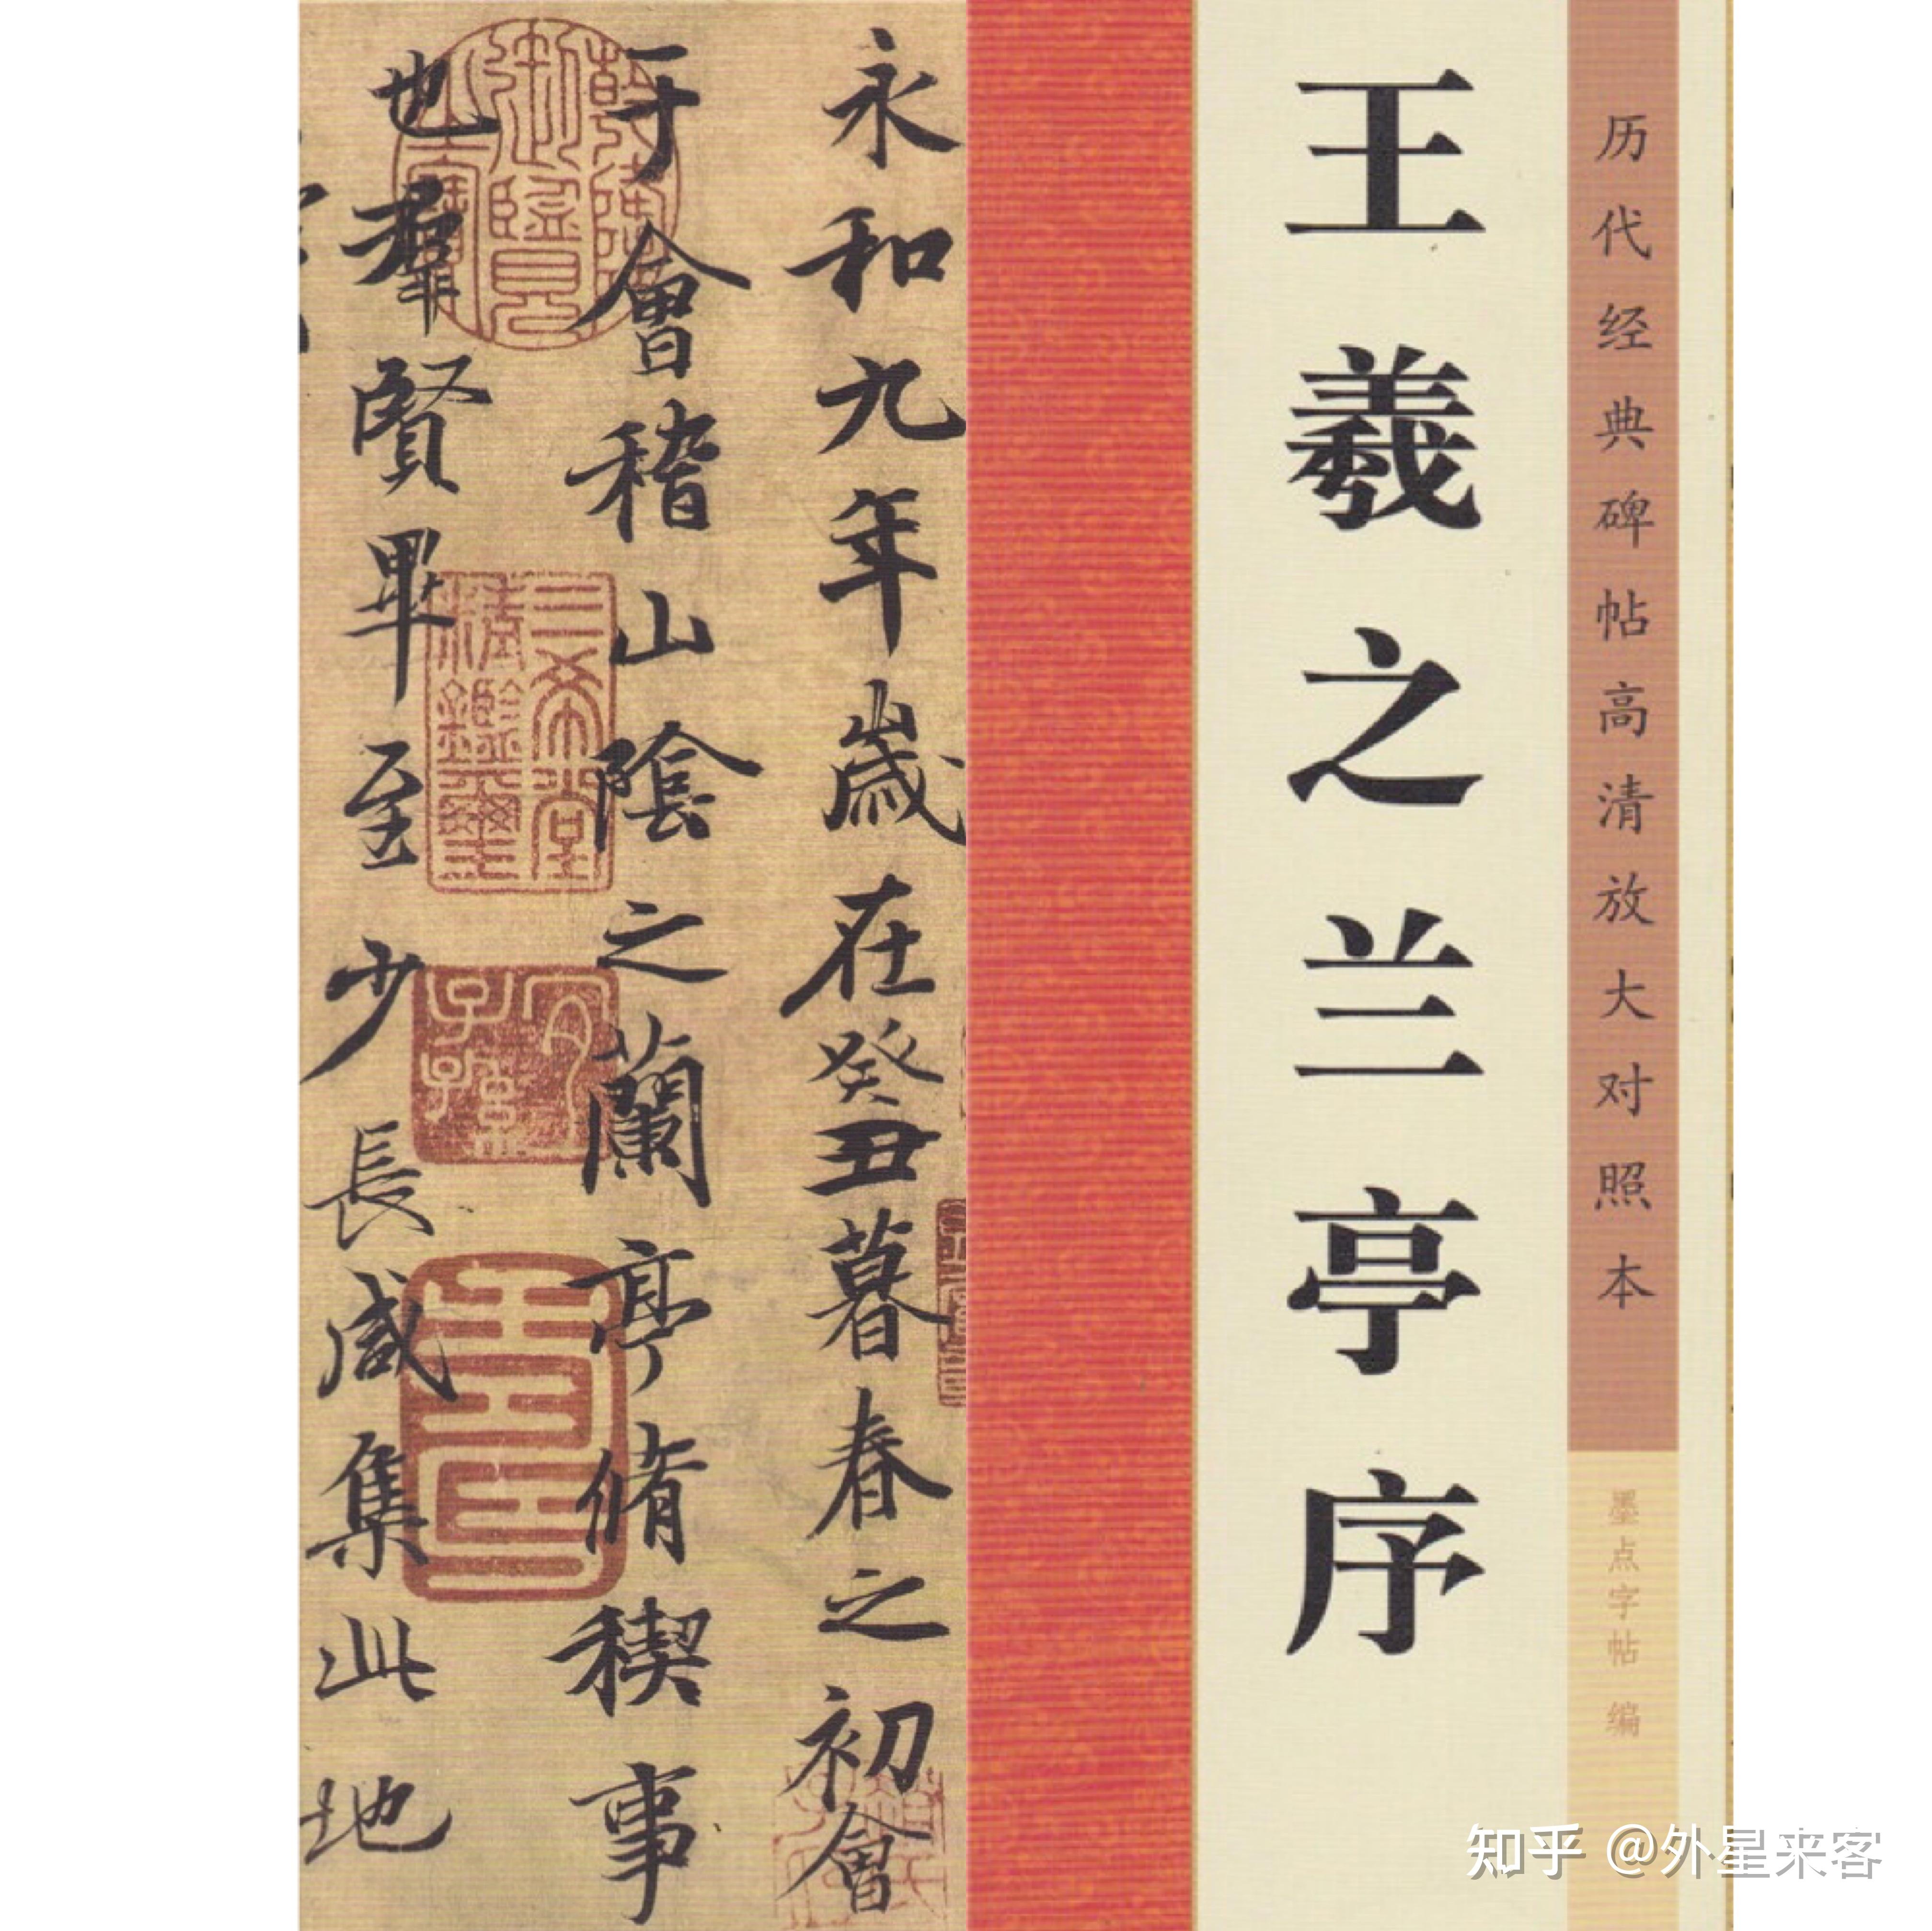 历代经典碑帖高清放大对照本
墨点字帖 编
王羲之兰亭序
永和九年歲在癸丑暮春之初會
于會稽山陰之蘭亭脩稧事
也羣賢畢至少長咸集此地
三希堂
精鑑璽
宜
子孫
知乎 @外星来客